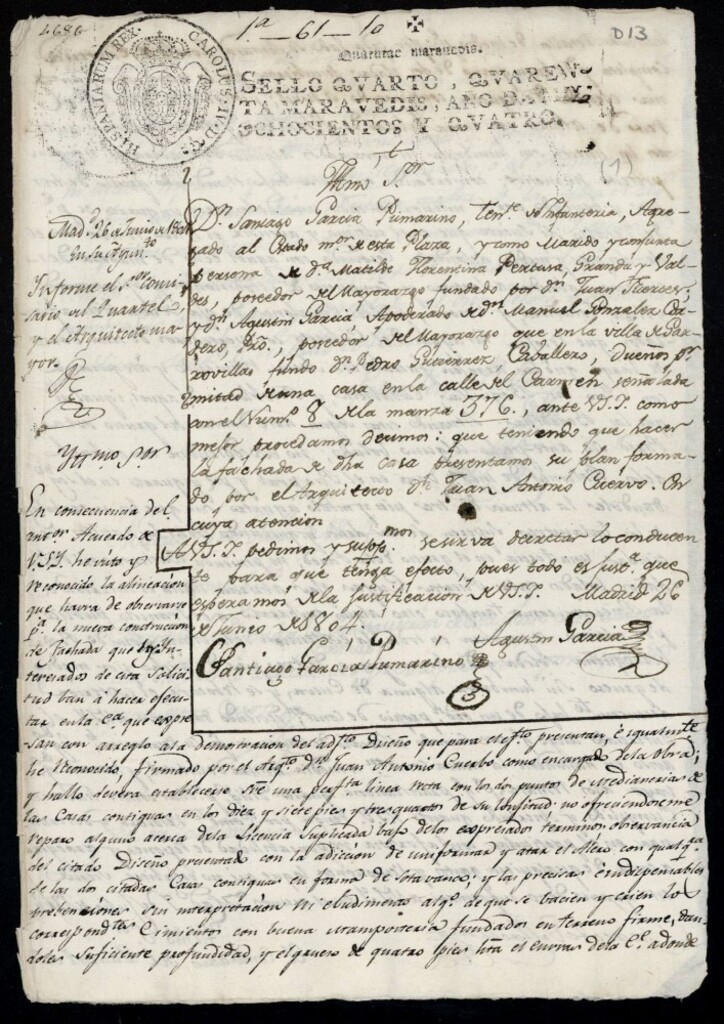 4686
1ª_61_10
D13
HISPANIARUM REX. CAROLUS·IV·D·G·
Quarenta maravedis.
SELLO QVARTO, QVAREN-
TA MARAVEDIS, AÑO DE MIL
OCHOCIENTOS Y QVATRO.
(1)
Yltmo Sor
Dn. Santiago Garcia Pumarino, Tente de Ynfanteria, Agre-
gado al Estado mor de esta Plaza, y como Marido y conjunta
persona de da Matilde Florentina Pertusa, Granda y Val-
des, poseedor del Mayorazgo fundado por dn Juan
y dn Agustin Garcia Apoderado de dn Manuel Gonzalez Cor-
dero, Pro, poseedor del Mayorazgo que en la villa de Gar-
rovillas fundo dn Pedro Gutierrez, Caballero, dueños pr
mitad de una casa en la calle del Carmen señalada
con el Numo 8 de la manza 376., ante V.S.Y. como
mejor procedamos decimos: que teniendo que hacer
la fachada de dha casa presentamos su plan forma-
do por el Arquitecto dn Juan Antonio Cuervo. En
cuya atencion
A V.S.Y. pedimos y suppmos se sirva decretar lo conducen
te para que tenga efecto, pues todo es justa que
esperamos de la justificacion de V.S.Y. Madrid 26
de Junio de 1804.
Agustin Garcia
Santiago Garcia Pumarino
Madd 26 de Junio de 1804
En su Ayunto
Ynforme el Sor Comi-
sario del Quartel
y el Arquitecto ma-
yor.
Yltmo Sor
En consecuencia del
antor Acuerdo de
V.S.Y. he visto y
reconocido la alineacion
que havra de observarse
pa la nueva construccion
de fachada que los Yn-
teresados de esta solici-
tud ban á hacer efecu-
tar en la Ca que expre-
san con arreglo a la demostracion del adjto Diseño que para el efto presentan, é igualmte
he reconocido, firmado por el Arqto Dn Juan Antonio Cuerbo como encargado de la obra;
y hallo devera establecerse sre una perfta linea recta con los dos puntos de medianerias de
las Casas contiguas en los diez y siete pies y tres quartos de su longitud: no ofreciendoseme
reparo alguno acerca de la licencia suplicada bajo de los expresados terminos, observancia
del citado Diseño presentado con la adicion de uniformar y atar el Alero con qualqra
de las dos citadas Casas contiguas en forma de sotavanco; y las precisas é indispensables
prebenciones sin interpretacion ni eludimento algo de que se bacien y crien los
correspondtes Cimientos con buena mamposteria fundados en terreno firme, dan-
doles suficiente profundidad, y el grueso de quatro pies hta el enrras de la Ce adonde